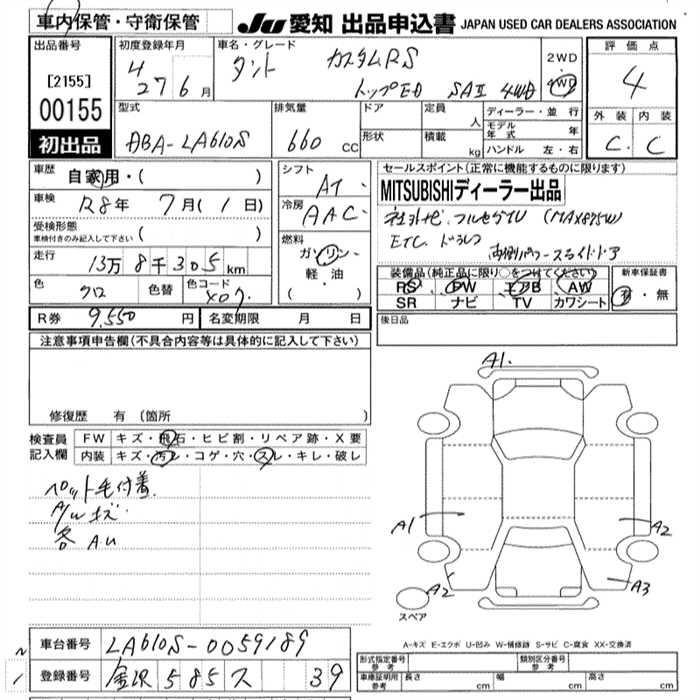 車内保管・守衛保管
JU 愛知 出品申込書 JAPAN USED CAR DEALERS ASSOCIATION
出品番号
[2155]
00155
初出品
初度登録年月
4
27 6 月
車名・グレード
タント カスタムRS
トップED SAⅡ 4WD
2WD
4WD
評価点
4
外装 内装
C. C
型式
DBA-LA610S
排気量
660 cc
ドア
形状
定員 人
積載 kg
ディーラー・並行
モデル年式 年
ハンドル 左・右
車歴
自家用・( )
車検
R8年 7月(1日)
受検形態
車検付きのみ記入して下さい ( )
走行
13万8千305km
色 クロ 色替 色コード X07
シフト
AT
冷房
AAC
燃料
ガソリン・
軽・油
( ・ )
セールスポイント(正常に機能するものに限ります)
MITSUBISHIディーラー出品
社外ナビ フルセグTV (MAX875W)
ETC ドラレコ
両側パワースライドドア
装備品(純正品に限り○をつけてください)
PS PW エアB AW
SR ナビ TV カワシート
新車保証書
有・無
R券 9,550 円 名変期限 月 日
後日品
注意事項申告欄(不具合内容等は具体的に記入して下さい)
修復歴 有 (箇所
検査員
記入欄
FW キズ・飛石・ヒビ割・リペア跡・X要
内装 キズ・汚レ・コゲ・穴・スレ・キレ・破レ
ペット毛付着
A/Wキズ
各 A.U
A1.
A1
A2
A2
A3
スペア
A-キズ E-エクボ U-凹み W-補修跡 S-サビ C-腐食 XX-交換済
車台番号 LA610S-0059189
登録番号 金沢 585 ス 39
2
1
形式指定番号
参考
類別区分番号
参考
車庫証明用
参考
長さ cm
幅 cm
高さ cm